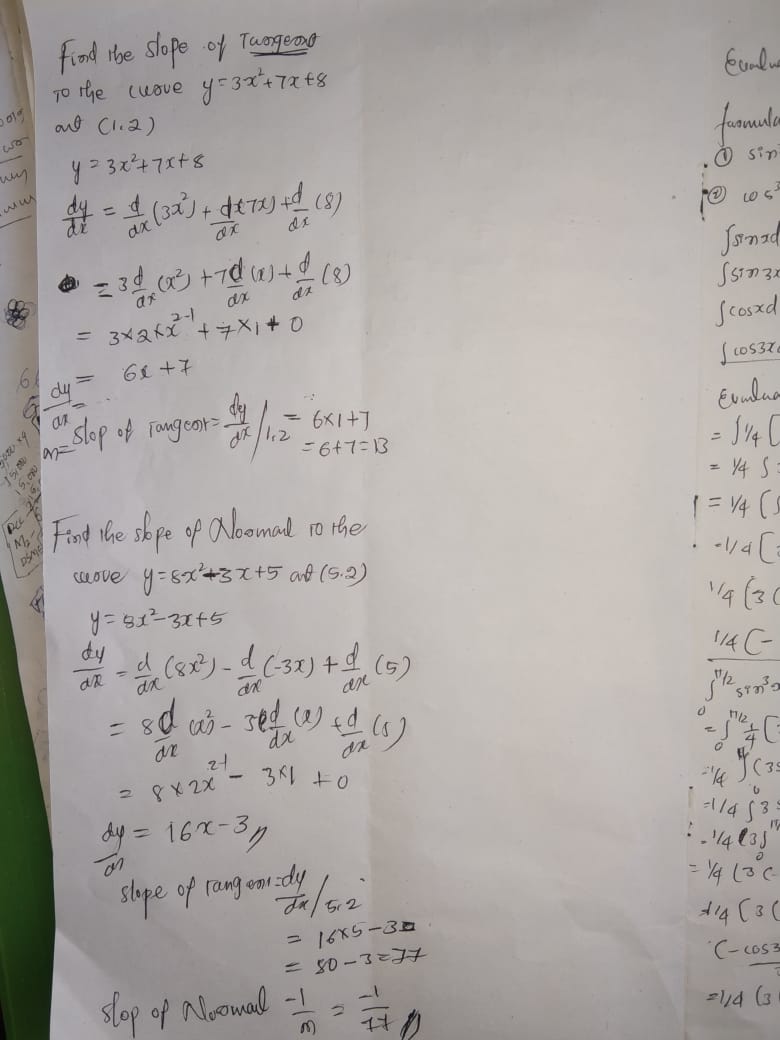 Find the slope of Tangent
To the curve y=3x²+7x+8
at (1,2)
y=3x²+7x+8
dy/dx = d/dx (3x²) + d/dx (7x) + d/dx (8)
= 3 d/dx (x²) + 7 d/dx (x) + d/dx (8)
= 3×2×x²⁻¹ + 7×1 + 0
dy/dx = 6x+7
m= slop of Tangent = dy/dx /1,2 = 6×1+7
= 6+7=13
Find the slope of Normal To the
curve y=8x²+3x+5 at (5.2)
y=8x²-3x+5
dy/dx = d/dx (8x²) - d/dx (-3x) + d/dx (5)
= 8 d/dx (x²) - 3 d/dx (x) + d/dx (5)
= 8×2x²⁻¹ - 3×1 + 0
dy/dx = 16x-3//
slope of Tangent = dy/dx /5.2
= 16×5-3
= 80-3=77
slop of Normal -1/m = -1/77 //
Evalu
formula
① sin
② cos³
∫sinxd
∫sin3x
∫cosxd
∫cos3x
Evalua
= ∫1/4 (
= 1/4 ∫
= 1/4 (
= 1/4 (
1/4 (3 (
1/4 (-
∫ π/2 sin³x
0
= ∫ π/2 1/4 (
0
= 1/4 ∫ (3s
= 1/4 ∫ 3
= 1/4 (3∫
= 1/4 (3 (-
1/4 (3 (
(-cos3
= 1/4 (3